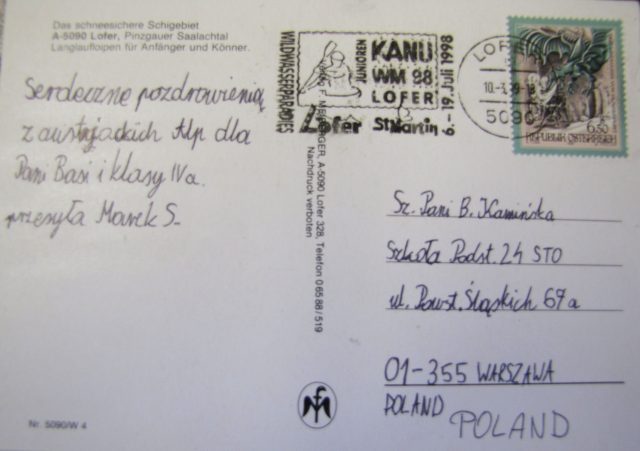 Das schneesichere Schigebiet
A-5090 Lofer, Pinzgauer Saalachtal
Langlaufloipen für Anfänger und Könner.
Serdeczne pozdrowienia
z austrjackich Alp dla
Pani Basi i klasy IVa.
przesyła Marek S.
Nr. 5090/W 4
WILDWASSERPARADIES
KANU
WM 98
LOFER
JUNIOREN
9. - 19. Juli 1998
Lofer St Martin
A-5090 Lofer 328, Telefon 0 65 88 / 519
Nachdruck verboten
LOFER
5090
6.50
REPUBLIK ÖSTERREICH
Sz. Pani B. Kamińska
Szkoła Podst. 24 STO
ul. Powst. Śląskich 67a
01-355 WARSZAWA
POLAND
POLAND